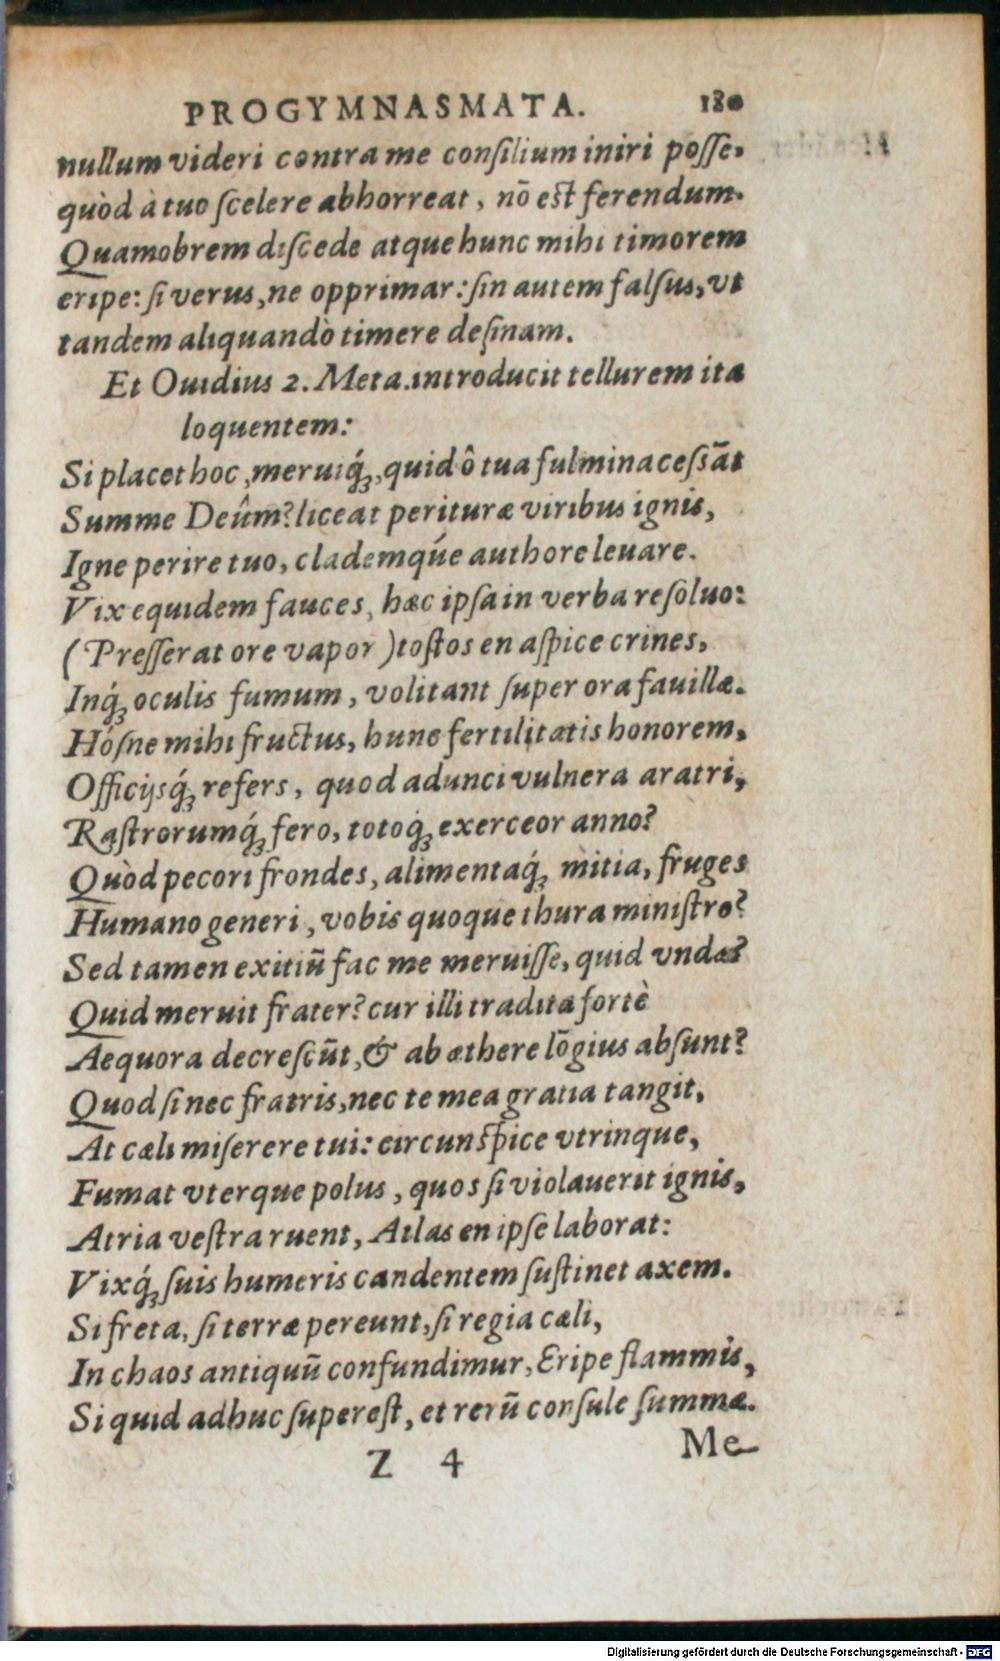 PROGYMNASMATA. 180
nullum videri contra me conſilium iniri poſſe,
quòd à tuo ſcelere abhorreat, nō eſt ferendum.
Quamobrem diſcede atque hunc mihi timorem
eripe: ſi verus, ne opprimar: ſin autem falſus, vt
tandem aliquandò timere deſinam.
Et Ouidius 2. Meta. introducit tellurem ita
loquentem:
Si placet hoc, meruiq́ꝫ, quid ô tua fulmina ceſsāt
Summe Deûm? liceat perituræ viribus ignis,
Igne perire tuo, clademq́ue authore leuare.
Vix equidem fauces, hæc ipſa in verba reſoluo:
(Preſſerat ore vapor) toſtos en aſpice crines,
Inq́ꝫ oculis fumum, volitant ſuper ora fauillæ.
Hóſne mihi fructus, hunc fertilitatis honorem,
Officijsq́ꝫ refers, quod adunci vulnera aratri,
Raſtrorumq́ꝫ fero, totoq́ꝫ exerceor anno?
Quòd pecori frondes, alimentaq́ꝫ mitia, fruges
Humano generi, vobis quoque thura miniſtro?
Sed tamen exitiū fac me meruiſſe, quid vndæ?
Quid meruit frater? cur illi tradita fortè
Aequora decreſcūt, & ab æthere lōgius abſunt?
Quod ſi nec fratris, nec te mea gratia tangit,
At cæli miſerere tui: circunſpice vtrinque,
Fumat vterque polus, quos ſi violauerit ignis,
Atria veſtra ruent, Atlas en ipſe laborat:
Vixq́ꝫ ſuis humeris candentem ſuſtinet axem.
Si freta, ſi terræ pereunt, ſi regia cæli,
In chaos antiquū confundimur, Eripe flammis,
Si quid adhuc ſupereſt, et rerū conſule ſummæ.
Z 4 Me
Digitalisierung gefördert durch die Deutsche Forschungsgemeinschaft - DFG